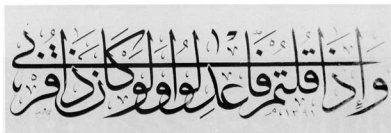 وَإِذَا قُلْتُمْ فَاعْدِلُوا وَلَوْ كَانَ ذَا قُرْبَى